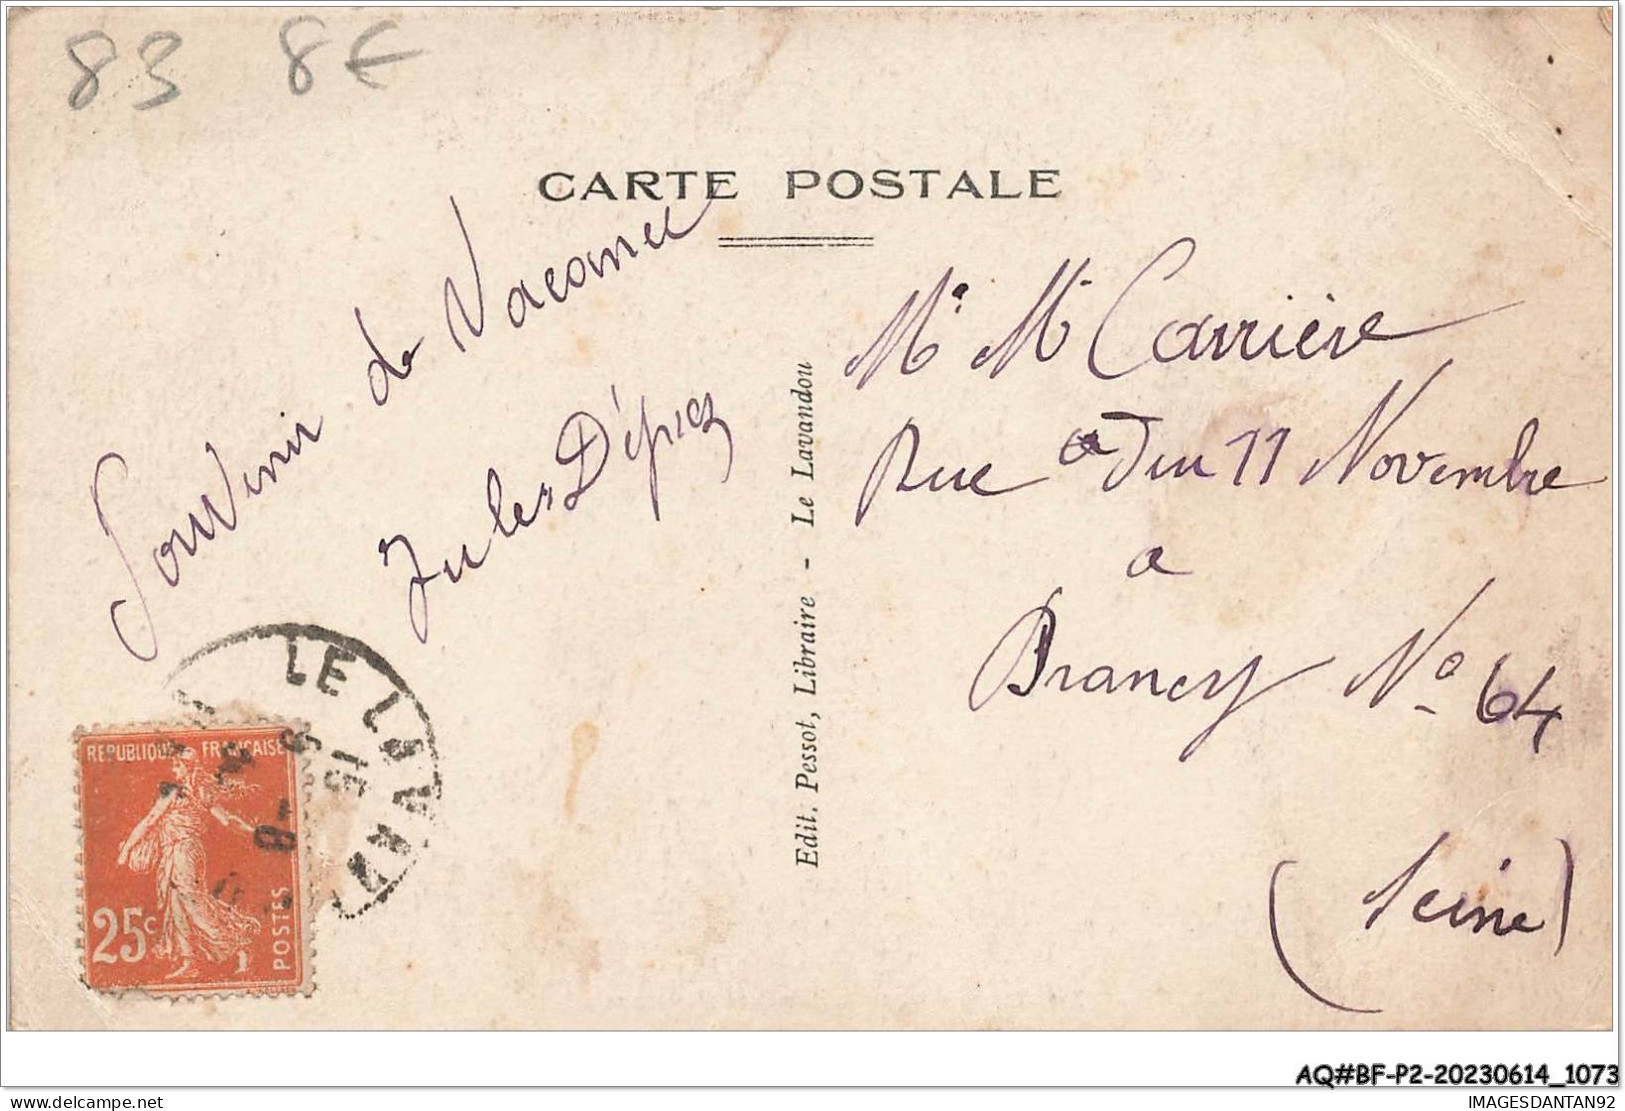 83 8€
CARTE POSTALE
Souvenir de Vacance
Jules
Mr Mr Carrière
Rue du 11 Novembre
a
Drancy No 64
(Seine)
Edit. Pessot, Libraire - Le Lavandou
LE LAVAN
15
REPUBLIQUE FRANÇAISE
25c
POSTES
AQ#BF-P2-20230614_1073
delcampe.net
IMAGESDANTAN92